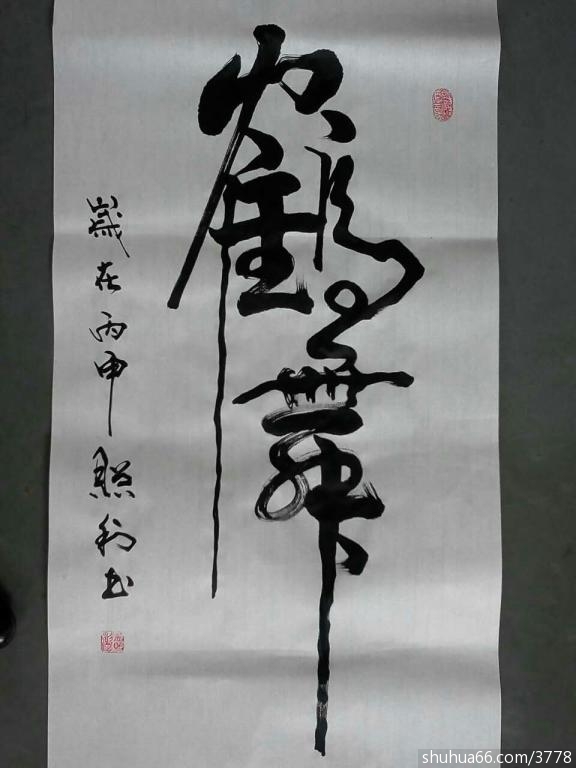 鹤舞
歲在丙申 照利书
shuhua66.com/3778